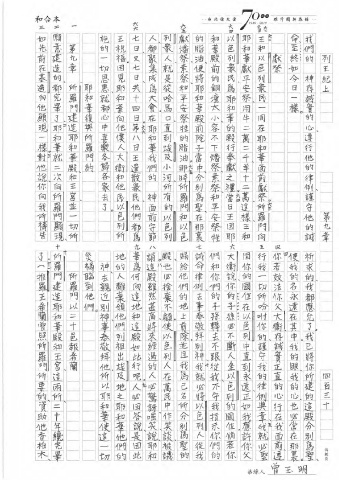 列王紀上 第九章 四百三十
我們的 神存誠實的心遵行他的律例謹守他的誡
命至終如今日一樣
獻祭
王和以色列眾民一同在耶和華面前獻祭所羅門向
耶和華獻平安祭用牛二萬二千羊十二萬這樣王和
以色列眾民為耶和華的殿行奉獻之禮當日王因耶
和華殿前的銅壇太小容不下燔祭素祭和平安祭牲
的脂油便將耶和華殿前院子當中分別為聖在那裏
獻燔祭素祭和平安祭牲的脂油那時所羅門和以色
列眾人就是從哈馬口直到埃及小河所有的以色列
人都聚集成為大會在耶和華我們的 神面前守節
七日又七日共十四日第八日王遣散眾民他們都為
王祝福因見耶和華向他僕人大衛和他民以色列所
施的一切恩惠就都心中喜樂各歸各家去了
第九章
所羅門建造耶和華殿和王宮並一切所
願意建造的都完畢了耶和華就二次向所羅門顯現
如先前在基遍向他顯現一樣對他說你向我所禱告
祈求的我都應允了我已將你所建的這殿分別為聖
使我的名永遠在其中我的眼我的心也必常在那裏
你若效法你父大衛存誠實正直的心行在我面前遵
行我一切所吩咐你的謹守我的律例典章我就必堅
固你的國位在以色列中直到永遠正如我應許你父
大衛說你的子孫必不斷人坐以色列的國位倘若你
們和你們的子孫轉去不跟從我不守我指示你們的
誡命律例去事奉敬拜別神我就必將以色列人從我
賜給他們的地上剪除並且我為己名所分別為聖的
殿也必捨棄不顧使以色列人在萬民中作笑談被譏
誚這殿雖然甚高將來經過的人必驚訝嗤笑說耶和
華為何向這地和這殿如此行呢人必回答說是因此
地的人離棄領他們列祖出埃及地之耶和華他們的
神去親近別神事奉敬拜他所以耶和華使這一切
災禍臨到他們
所羅門以二十邑報希蘭
所羅門建造耶和華殿和王宮這兩所二十年纔完畢
了推羅王希蘭曾照所羅門所要的資助他香柏木
和合本
承傳人 曾玉明
7000